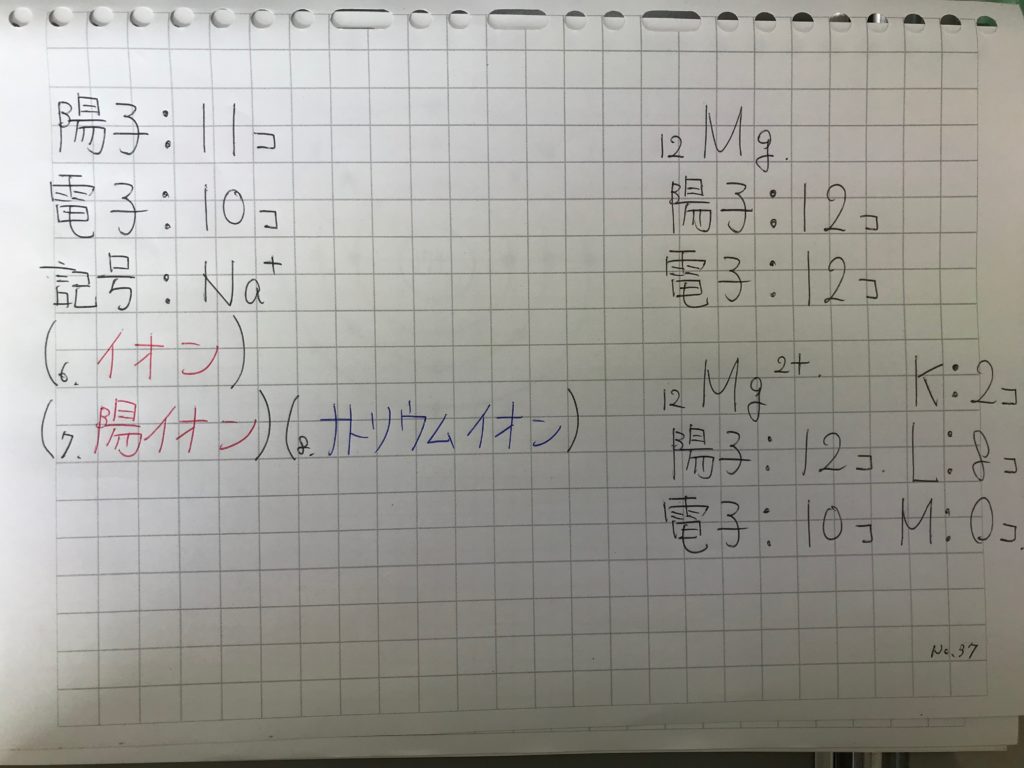 陽子:11コ
電子:10コ
記号:Na⁺
(6.イオン)
(7.陽イオン)(8.ナトリウムイオン)
₁₂Mg.
陽子:12コ
電子:12コ
₁₂Mg²⁺. K:2コ
陽子:12コ. L:8コ
電子:10コ M:0コ.
No.37